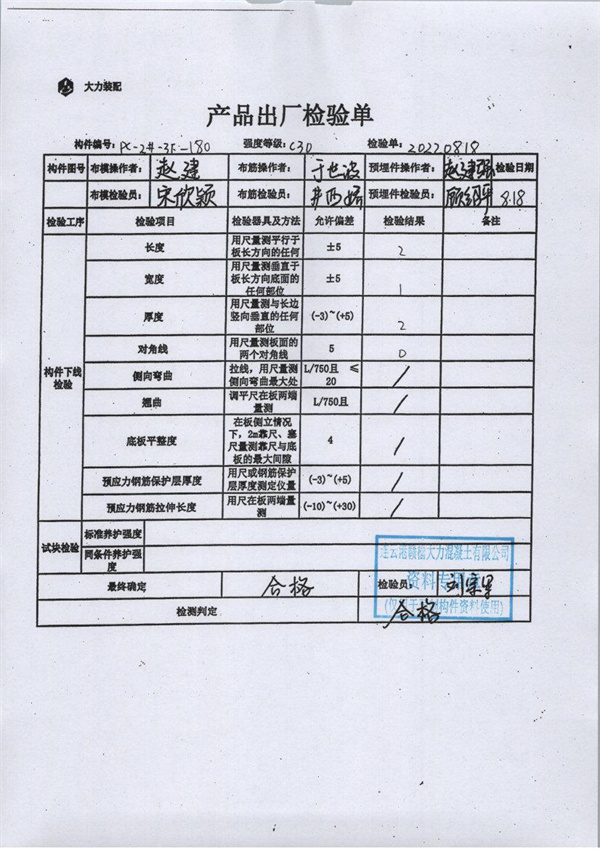 大力装配
产品出厂检验单
构件编号: PC-2#-3F-180 强度等级: C30 检验单: 20220818
构件图号 布模操作者: 赵建 布筋操作者: 于世波 预埋件操作者: 赵建强 检验日期
布模检验员: 宋欣颖 布筋检验员: 预埋件检验员: 8.18
检验工序 检验项目 检验器具及方法 允许偏差 检验结果 备注
构件下线检验
长度 用尺量测平行于板长方向的任何 ±5 2
宽度 用尺量测垂直于板长方向底面的任何部位 ±5 1
厚度 用尺量测与长边竖向垂直的任何部位 (-3)~(+5) 2
对角线 用尺量测板面的两个对角线 5 0
侧向弯曲 拉线，用尺量测侧向弯曲最大处 L/750且 ≤20 /
翘曲 调平尺在板两端量测 L/750且 /
底板平整度 在板侧立情况下，2m靠尺、塞尺量测靠尺与底板的最大间隙 4 /
预应力钢筋保护层厚度 用尺或钢筋保护层厚度测定仪量 (-3)~(+5) /
预应力钢筋拉伸长度 用尺在板两端量测 (-10)~(+30) /
试块检验 标准养护强度
同条件养护强度
最终确定 合格 检验员:
检测判定 合格
连云港赣榆大力混凝土有限公司
资料专用章
构件资料使用)